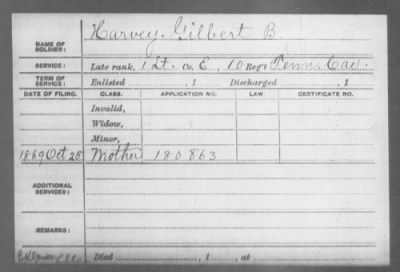 Harvey, Gilbert B.
NAME OF SOLDIER:
SERVICE: Late rank, 1 Lt. Co. E, 10 Reg't Penn. Cav.
TERM OF SERVICE: Enlisted , 1 Discharged , 1
DATE OF FILING. CLASS. APPLICATION NO. LAW CERTIFICATE NO.
Invalid,
Widow,
Minor,
1869 Oct 25 Mother 180863
ADDITIONAL SERVICES:
REMARKS:
Died , 1 , at